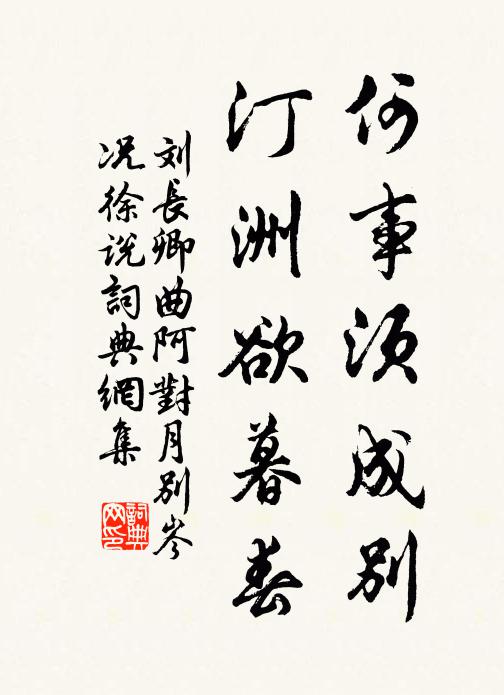 何事须成别
汀洲欲暮春
刘長卿曲阿對月别岑
况徐说詞典網集
詞典网印